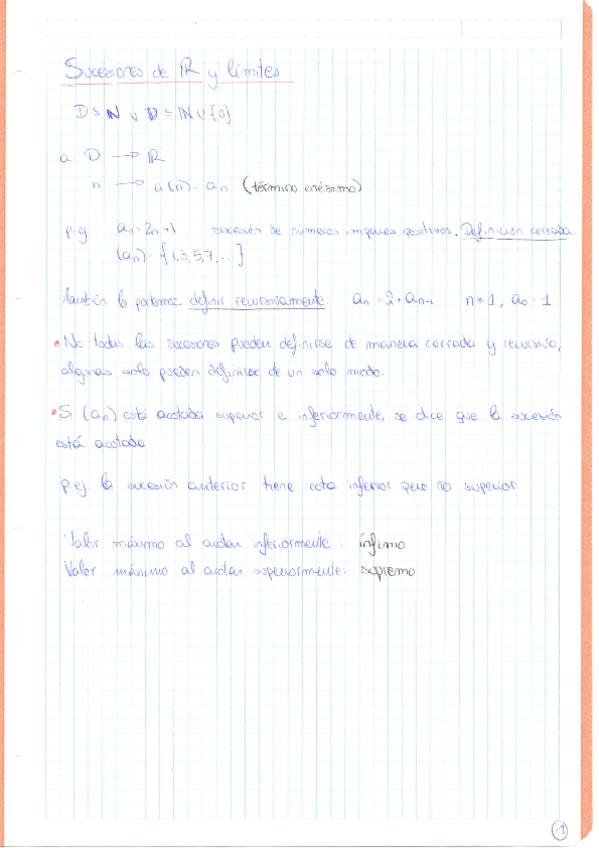 Sucesiones de ℝ y límites
D ⊆ ℕ ∨ D ⊆ ℕ ∪ {0}
a D → ℝ
n → a(n) = aₙ (término enésimo)
p.ej aₙ = 2n + 1 sucesión de números impares positivos. Definición cerrada
(aₙ) = {1,3,5,7,...}
También lo podemos definir recursivamente: aₙ = 2 + aₙ₋₁ n ≥ 1, a₀ = 1
• No todas las sucesiones pueden definirse de manera cerrada y recursiva,
algunas solo pueden definirse de un solo modo.
• Si (aₙ) está acotada superior e inferiormente, se dice que la sucesión
está acotada
p.ej la sucesión anterior tiene cota inferior pero no superior
Valor máximo al acotar inferiormente: ínfimo
Valor mínimo al acotar superiormente: supremo
1